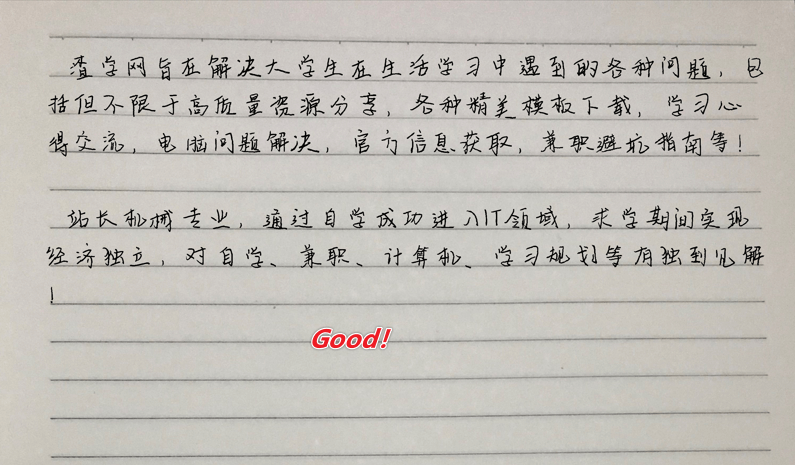 渣学网旨在解决大学生在生活学习中遇到的各种问题，包
括但不限于高质量资源分享，各种精美模板下载，学习心
得交流，电脑问题解决，官方信息获取，兼职避坑指南等！
站长机械专业，通过自学成功进入IT领域，求学期间实现
经济独立，对自学、兼职、计算机、学习规划等有独到见解
！
Good!